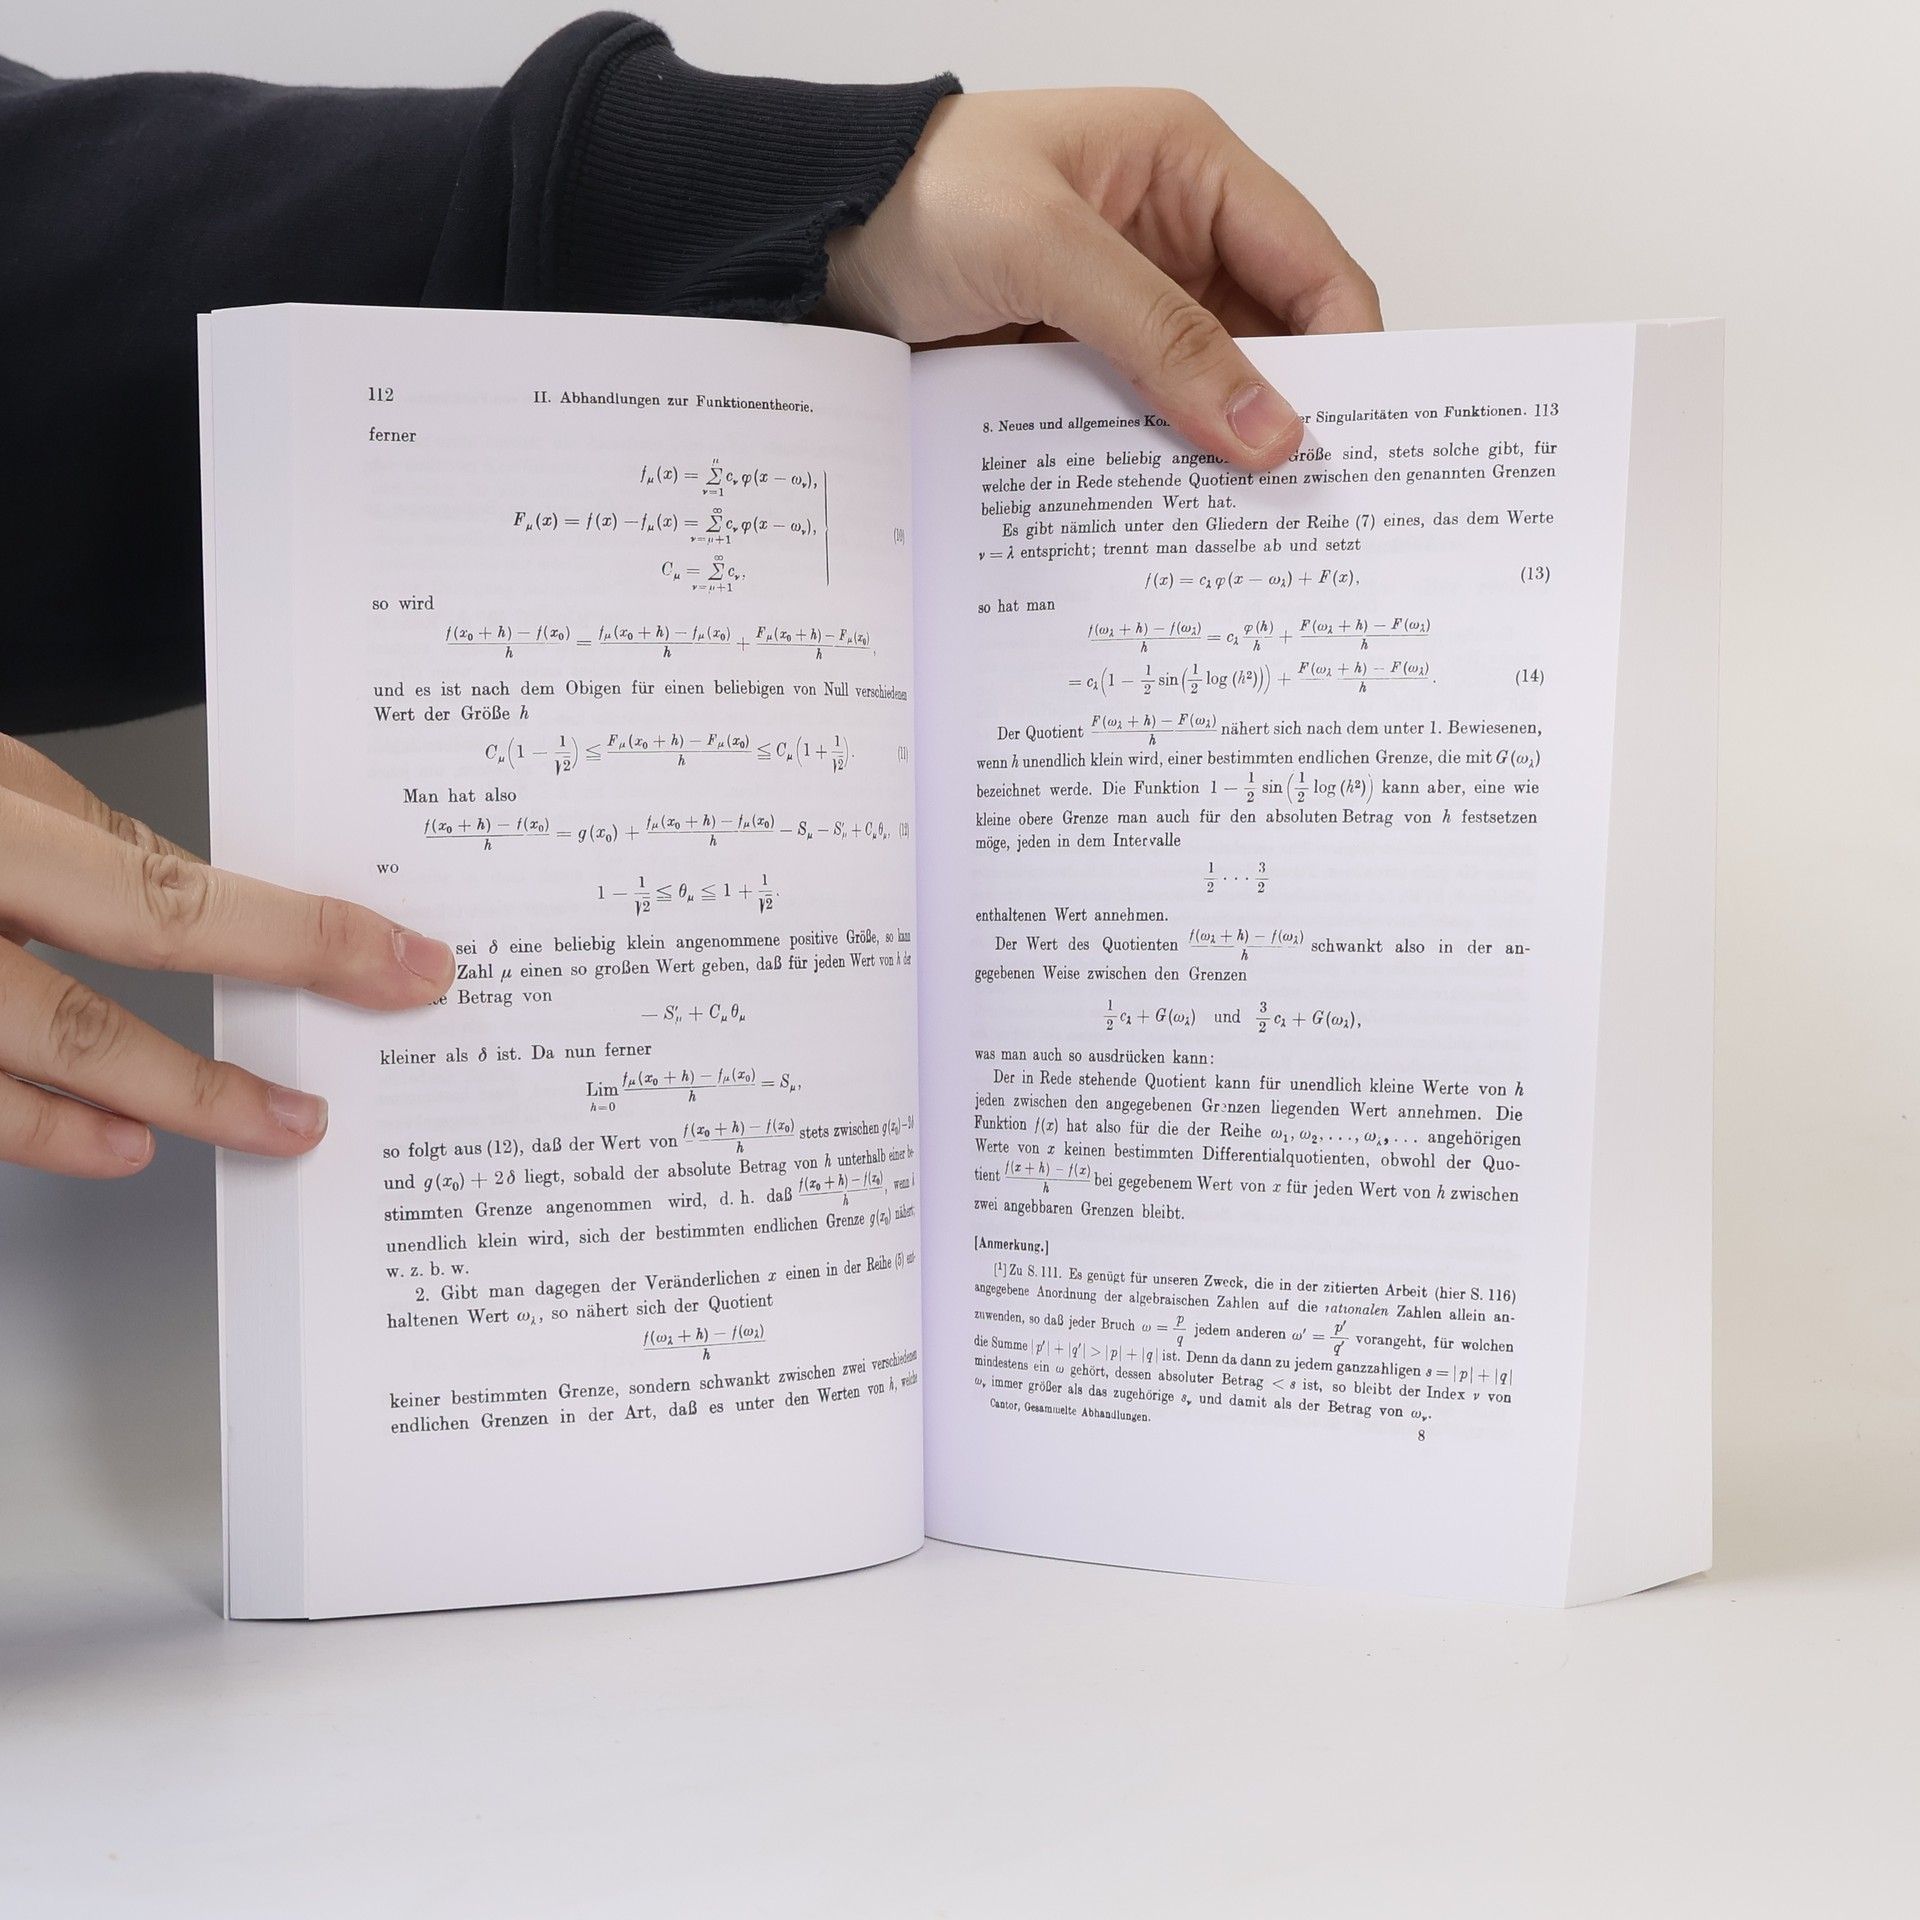 112 II. Abhandlungen zur Funktionentheorie.
ferner
f_μ(x) = Σ_{ν=1}^{μ} c_ν φ(x − ω_ν),
F_μ(x) = f(x) − f_μ(x) = Σ_{ν=μ+1}^{∞} c_ν φ(x − ω_ν), (10)
C_μ = Σ_{ν=μ+1}^{∞} c_ν,
so wird
(f(x₀ + h) − f(x₀))/h = (f_μ(x₀ + h) − f_μ(x₀))/h + (F_μ(x₀ + h) − F_μ(x₀))/h,
und es ist nach dem Obigen für einen beliebigen von Null verschiedenen
Wert der Größe h
C_μ(1 − 1/√2) ≦ (F_μ(x₀ + h) − F_μ(x₀))/h ≦ C_μ(1 + 1/√2). (11)
Man hat also
(f(x₀ + h) − f(x₀))/h = g(x₀) + (f_μ(x₀ + h) − f_μ(x₀))/h − S_μ − S′_μ + C_μ θ_μ, (12)
wo
1 − 1/√2 ≦ θ_μ ≦ 1 + 1/√2.
sei δ eine beliebig klein angenommene positive Größe, so kann
Zahl μ einen so großen Wert geben, daß für jeden Wert von h der
Betrag von
− S′_μ + C_μ θ_μ
kleiner als δ ist. Da nun ferner
Lim_{h=0} (f_μ(x₀ + h) − f_μ(x₀))/h = S_μ,
so folgt aus (12), daß der Wert von (f(x₀ + h) − f(x₀))/h stets zwischen g(x₀) − 2δ
und g(x₀) + 2δ liegt, sobald der absolute Betrag von h unterhalb einer be-
stimmten Grenze angenommen wird, d. h. daß (f(x₀ + h) − f(x₀))/h, wenn h
unendlich klein wird, sich der bestimmten endlichen Grenze g(x₀) nähert,
w. z. b. w.
2. Gibt man dagegen der Veränderlichen x einen in der Reihe (5) ent-
haltenen Wert ω_λ, so nähert sich der Quotient
(f(ω_λ + h) − f(ω_λ))/h
keiner bestimmten Grenze, sondern schwankt zwischen zwei verschiedenen
endlichen Grenzen in der Art, daß es unter den Werten von h, welche
8. Neues und allgemeines Singularitäten von Funktionen. 113
kleiner als eine beliebig Größe sind, stets solche gibt, für
welche der in Rede stehende Quotient einen zwischen den genannten Grenzen
beliebig anzunehmenden Wert hat.
Es gibt nämlich unter den Gliedern der Reihe (7) eines, das dem Werte
ν = λ entspricht; trennt man dasselbe ab und setzt
f(x) = c_λ φ(x − ω_λ) + F(x), (13)
so hat man
(f(ω_λ + h) − f(ω_λ))/h = c_λ φ(h)/h + (F(ω_λ + h) − F(ω_λ))/h
= c_λ(1 − 1/2 sin(1/2 log (h²))) + (F(ω_λ + h) − F(ω_λ))/h. (14)
Der Quotient (F(ω_λ + h) − F(ω_λ))/h nähert sich nach dem unter 1. Bewiesenen,
wenn h unendlich klein wird, einer bestimmten endlichen Grenze, die mit G(ω_λ)
bezeichnet werde. Die Funktion 1 − 1/2 sin(1/2 log (h²)) kann aber, eine wie
kleine obere Grenze man auch für den absoluten Betrag von h festsetzen
möge, jeden in dem Intervalle
1/2 . . . 3/2
enthaltenen Wert annehmen.
Der Wert des Quotienten (f(ω_λ + h) − f(ω_λ))/h schwankt also in der an-
gegebenen Weise zwischen den Grenzen
1/2 c_λ + G(ω_λ) und 3/2 c_λ + G(ω_λ),
was man auch so ausdrücken kann:
Der in Rede stehende Quotient kann für unendlich kleine Werte von h
jeden zwischen den angegebenen Grenzen liegenden Wert annehmen. Die
Funktion f(x) hat also für die der Reihe ω₁, ω₂, . . ., ω_λ, . . . angehörigen
Werte von x keinen bestimmten Differentialquotienten, obwohl der Quo-
tient (f(x + h) − f(x))/h bei gegebenem Wert von x für jeden Wert von h zwischen
zwei angebbaren Grenzen bleibt.
[Anmerkung.]
[¹] Zu S. 111. Es genügt für unseren Zweck, die in der zitierten Arbeit (hier S. 116)
angegebene Anordnung der algebraischen Zahlen auf die rationalen Zahlen allein an-
zuwenden, so daß jeder Bruch ω = p/q jedem anderen ω′ = p′/q′ vorangeht, für welchen
die Summe |p′| + |q′| > |p| + |q| ist. Denn da dann zu jedem ganzzahligen s = |p| + |q|
mindestens ein ω gehört, dessen absoluter Betrag < s ist, so bleibt der Index ν von
ω_ν immer größer als das zugehörige s_ν und damit als der Betrag von ω_ν.
Cantor, Gesammelte Abhandlungen.
8